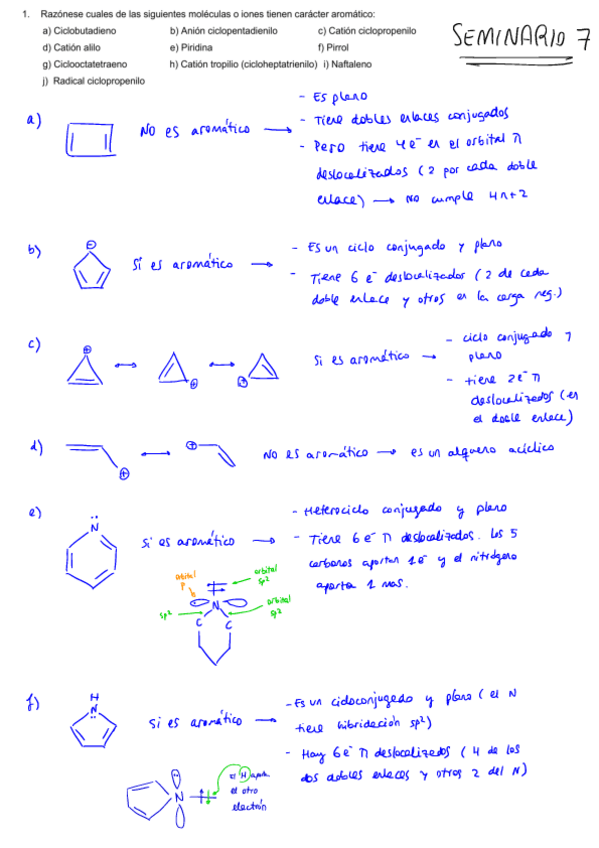 1. Razónese cuales de las siguientes moléculas o iones tienen carácter aromático:
a) Ciclobutadieno b) Anión ciclopentadienilo c) Catión ciclopropenilo
d) Catión alilo e) Piridina f) Pirrol
g) Ciclooctatetraeno h) Catión tropilio (cicloheptatrienilo) i) Naftaleno
j) Radical ciclopropenilo
SEMINARIO 7
a)
NO es aromático
- Es plano
- Tiene dobles enlaces conjugados
- Pero tiene 4e⁻ en el orbital π
deslocalizados (2 por cada doble
enlace) → NO cumple 4n+2
b)
⊖
Sí es aromático
- Es un ciclo conjugado y plano
- Tiene 6 e⁻ deslocalizados (2 de cada
doble enlace y otros en la carga neg.)
c)
⊕ ↔ ⊕ ↔ ⊕
Si es aromático →
- ciclo conjugado y
plano
- tiene 2e⁻ π
deslocalizados (en
el doble enlace)
d)
⊕ ↔ ⊕
NO es aromático → es un alqueno acíclico
e)
N
Si es aromático →
- Heterociclo conjugado y plano
- Tiene 6e⁻ π deslocalizados. Los 5
carbonos aportan 1e⁻ y el nitrógeno
aporta 1 mas.
orbital
p
orbital
sp²
sp²
N
orbital
sp²
C C
f)
H
N
Si es aromático →
- Es un ciclo conjugado y plano (el N
tiene hibridación sp²)
- Hay 6e⁻ π deslocalizados (4 de los
dos dobles enlaces y otros 2 del N)
N
el H aporta
el otro
electrón